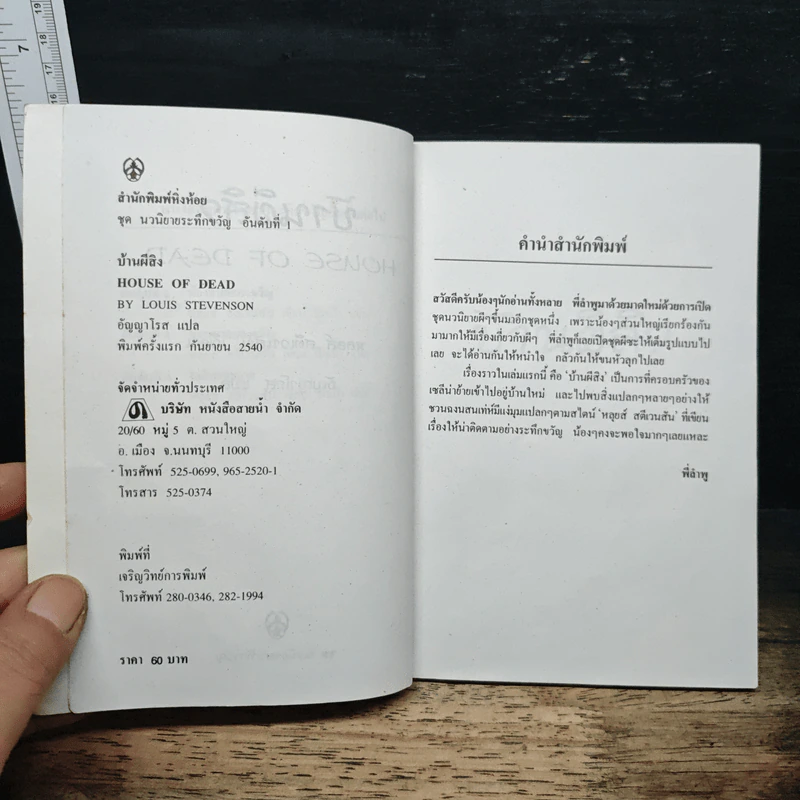 สำนักพิมพ์หิ่งห้อย
ชุด นวนิยายระทึกขวัญ อันดับที่ 1
บ้านผีสิง
HOUSE OF DEAD
BY LOUIS STEVENSON
อัญญาโรส แปล
พิมพ์ครั้งแรก กันยายน 2540
จัดจำหน่ายทั่วประเทศ
บริษัท หนังสือสายน้ำ จำกัด
20/60 หมู่ 5 ต. สวนใหญ่
อ. เมือง จ.นนทบุรี 11000
โทรศัพท์ 525-0699, 965-2520-1
โทรสาร 525-0374
พิมพ์ที่
เจริญวิทย์การพิมพ์
โทรศัพท์ 280-0346, 282-1994
ราคา 60 บาท
คำนำสำนักพิมพ์
สวัสดีครับน้องๆนักอ่านทั้งหลาย พี่ลำพูมาด้วยมาดใหม่ด้วยการเปิด
ชุดนวนิยายผีๆขึ้นมาอีกชุดหนึ่ง เพราะน้องๆส่วนใหญ่เรียกร้องกัน
มามากให้มีเรื่องเกี่ยวกับผีๆ พี่ลำพูก็เลยเปิดชุดผีซะให้เต็มรูปแบบไป
เลย จะได้อ่านกันให้หนำใจ กลัวกันให้ขนหัวลุกไปเลย
เรื่องราวในเล่มแรกนี้ คือ 'บ้านผีสิง' เป็นการที่ครอบครัวของ
เซลีน่าย้ายเข้าไปอยู่บ้านใหม่ และไปพบสิ่งแปลกๆหลายๆอย่างให้
ชวนฉงนสนเท่ห์มีแง่มุมแปลกๆตามสไตน์ 'หลุยส์ สตีเวนสัน' ที่เขียน
เรื่องให้น่าติดตามอย่างระทึกขวัญ น้องๆคงจะพอใจมากๆเลยแหละ
พี่ลำพู
7
16
17
18
19